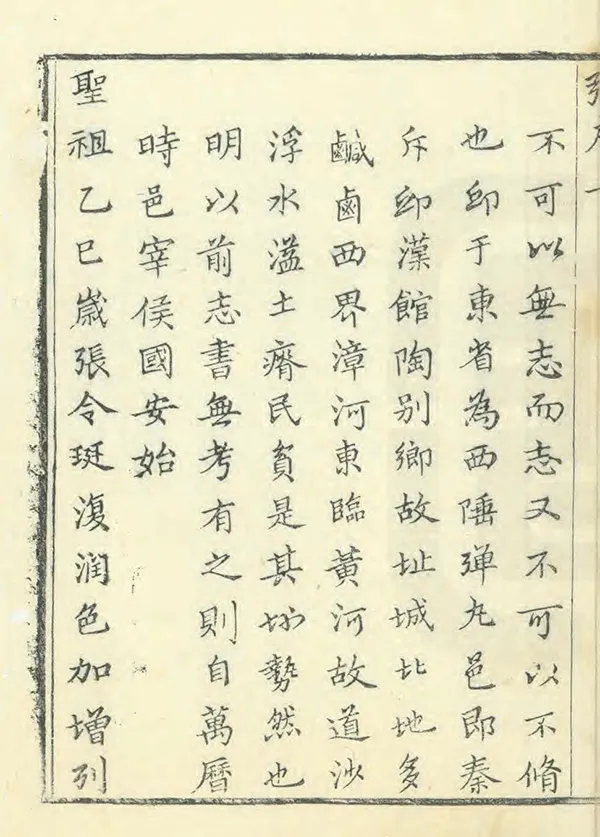 不可以無志而志又不可以不脩
也邱于東省為西陲弹丸邑即秦
斥邱漢館陶别鄉故址城北地多
鹹鹵西界漳河東臨黃河故道沙
浮水溢土瘠民貧是其勢然也
明以前志書無考有之則自萬曆
時邑宰侯國安始
聖祖乙巳歲張令珽復润色加增列